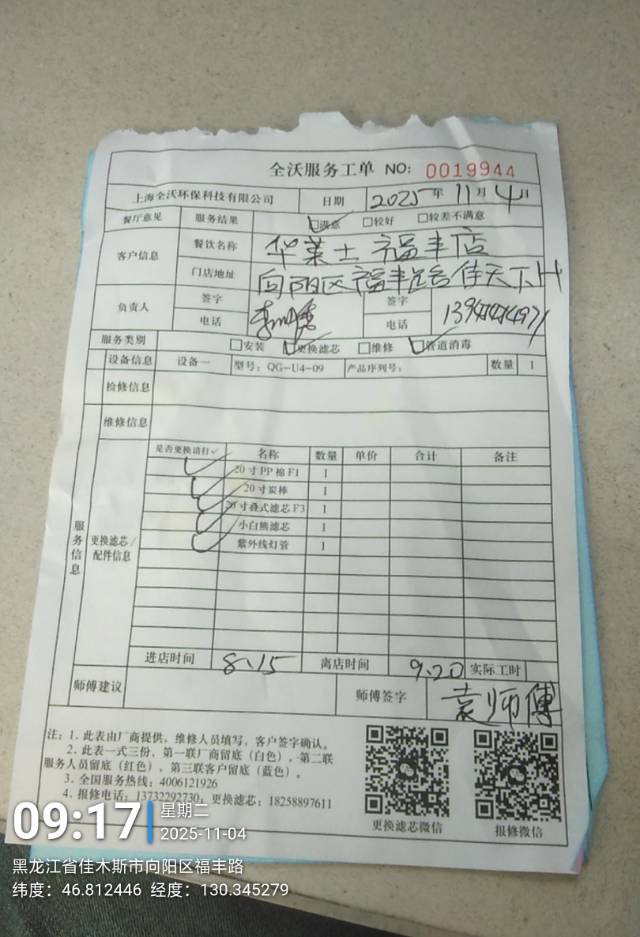 全沃服务工单 NO: 0019944
上海全沃环保科技有限公司 日期 2025年11月4日
餐厅意见 服务结果 ☑满意 □较好 □较差不满意
客户信息 餐饮名称 华莱士福丰店
门店地址 向阳区福丰路佳天下H
负责人 签字 签字
电话 电话
服务类别 □安装 ☑更换滤芯 □维修 ☑管道消毒
设备信息 设备一 型号: QG-U4-09 产品序列号: 数量 1
检修信息
维修信息
服务信息 更换滤芯/配件信息
是否更换请打✓ 名称 数量 单价 合计 备注
✓ 20寸PP棉F1 1
✓ 20寸炭棒 1
✓ 20寸叠式滤芯F3 1
✓ 小白熊滤芯 1
✓ 紫外线灯管 1
进店时间 8:15 离店时间 9:20 实际工时
师傅建议 师傅签字 袁师傅
注: 1. 此表由厂商提供, 维修人员填写, 客户签字确认。
2. 此表一式三份, 第一联厂商留底(白色), 第二联
服务人员留底(红色), 第三联客户留底(蓝色)。
3. 全国服务热线: 4006121926
4. 报修电话: 13732292730; 更换滤芯: 18258897611
更换滤芯微信 报修微信
09:17 星期二
2025-11-04
黑龙江省佳木斯市向阳区福丰路
纬度: 46.812446 经度: 130.345279